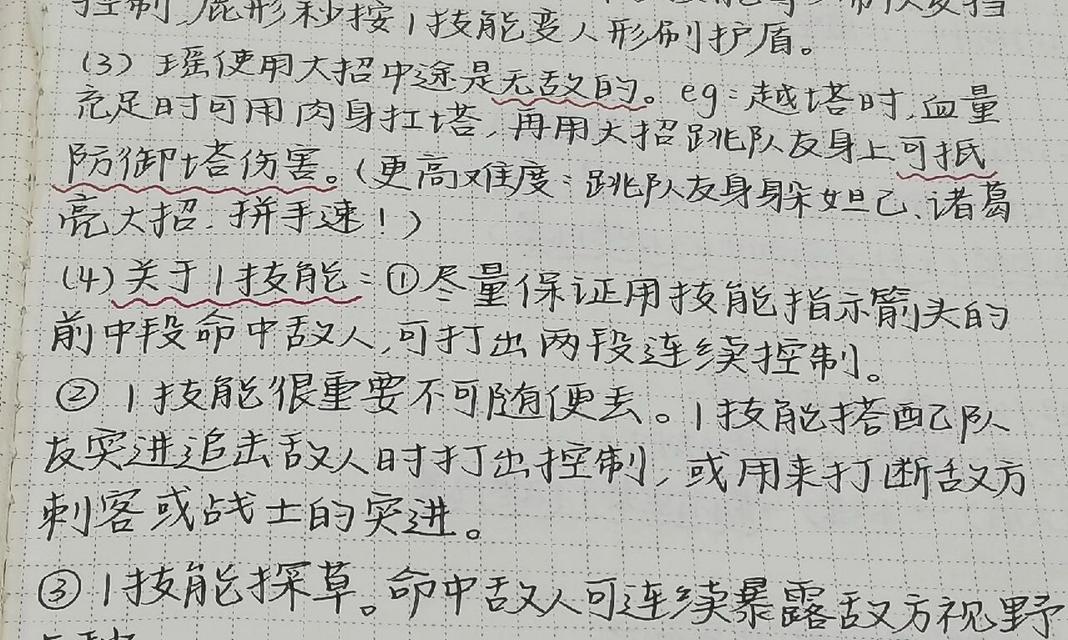 控制,鹿形秒按1技能变人形刷护盾。
(3) 瑶使用大招中途是无敌的。eg:越塔时,血量
充足时可用肉身扛塔,再用大招跳队友身上可抵
防御塔伤害。(更高难度:跳队友身身躲妲己、诸葛
亮大招.拼手速!)
(4)关于1技能:①尽量保证用技能指示箭头的
前中段命中敌人,可打出两段连续控制。
② 1技能很重要不可随便丢。1技能搭配队
友突进追击敌人时打出控制,或用来打断敌方
刺客或战士的突进。
③ 1技能探草。命中敌人可连续暴露敌方视野